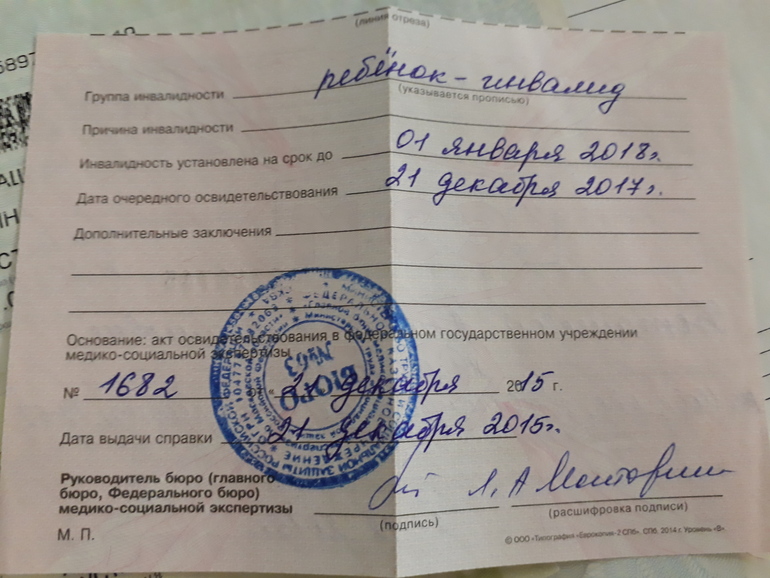 (линия отреза)
Группа инвалидности ребёнок - инвалид
(указывается прописью)
Причина инвалидности
Инвалидность установлена на срок до 01 января 2018г.
Дата очередного освидетельствования 21 декабря 2017г.
Дополнительные заключения
Основание: акт освидетельствования в федеральном государственном учреждении
медико-социальной экспертизы
№ 1682 от 21 декабря 2015 г.
Дата выдачи справки 21 декабря 2015г.
Руководитель бюро (главного
бюро, Федерального бюро)
медико-социальной экспертизы
(подпись)
(расшифровка подписи)
М. П.
© ООО «Типография «Еврокопия-2 СПб». СПб, 2014 г. Уровень «В».
БЮРО
№63